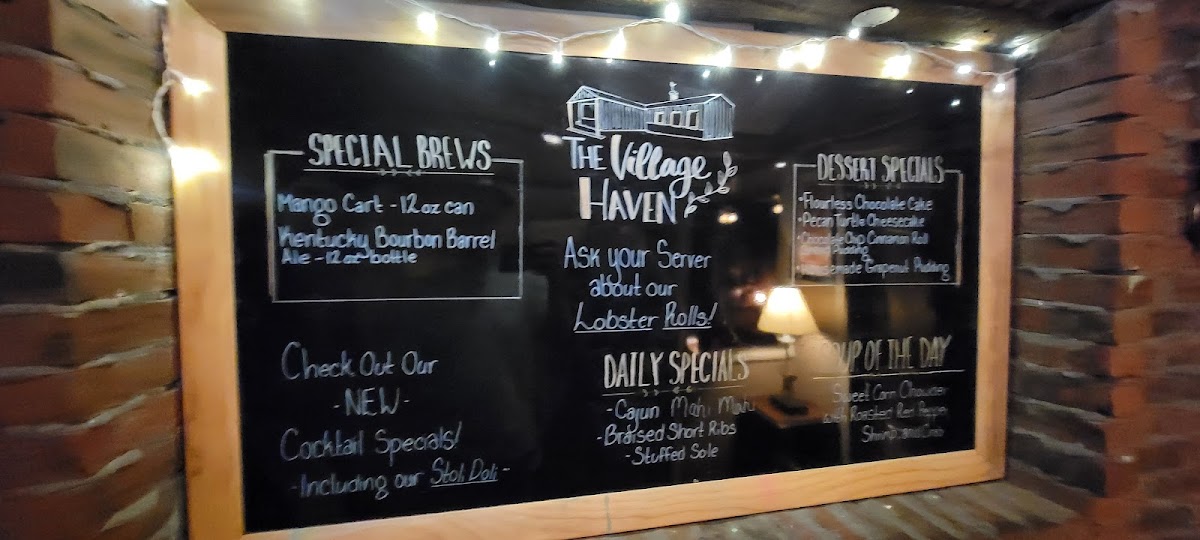 SPECIAL BREWS
Mango Cart - 12 oz can
Kentucky Bourbon Barrel
Ale - 12 oz bottle
Check Out Our
- NEW -
Cocktail Specials!
- Including our Stoli Doli -
THE Village
HAVEN
Ask your Server
about our
Lobster Rolls!
DAILY SPECIALS
- Cajun Mahi Mahi
- Braised Short Ribs
- Stuffed Sole
DESSERT SPECIALS
• Flourless Chocolate Cake
• Pecan Turtle Cheesecake
• Chocolate Chip Cinnamon Roll
Pudding
• Homemade Grapenut Pudding
SOUP OF THE DAY
Sweet Corn Chowder
with Roasted Red Pepper
Shrimp and Crab